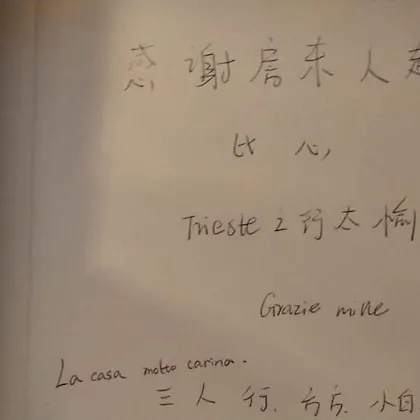 感谢房东人
比心
Trieste之行太愉
Grazie mille
La casa molto carina.
三人行、方方、小白